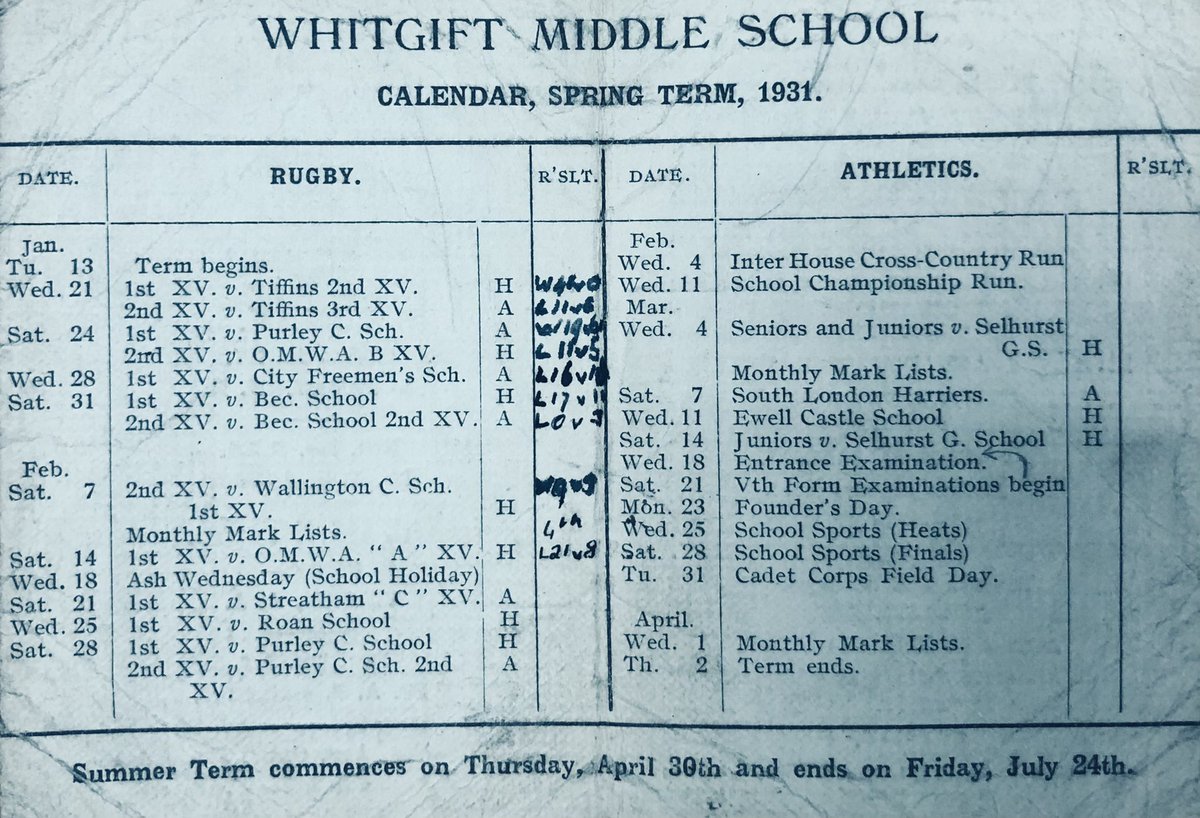 WHITGIFT MIDDLE SCHOOL
CALENDAR, SPRING TERM, 1931.
DATE. RUGBY. R'SLT.
Jan.
Tu. 13 Term begins.
Wed. 21 1st XV. v. Tiffins 2nd XV. H
2nd XV. v. Tiffins 3rd XV. A L11v6
Sat. 24 1st XV. v. Purley C. Sch. A
2nd XV. v. O.M.W.A. B XV. H L11v5
Wed. 28 1st XV. v. City Freemen's Sch. A
Sat. 31 1st XV. v. Bec. School H L17v11
2nd XV. v. Bec. School 2nd XV. A
Feb.
Sat. 7 2nd XV. v. Wallington C. Sch.
1st XV. H
Monthly Mark Lists. 4th
Sat. 14 1st XV. v. O.M.W.A. "A" XV. H L21v8
Wed. 18 Ash Wednesday (School Holiday)
Sat. 21 1st XV. v. Streatham "C" XV. A
Wed. 25 1st XV. v. Roan School H
Sat. 28 1st XV. v. Purley C. School H
2nd XV. v. Purley C. Sch. 2nd A
XV.
DATE. ATHLETICS. R'SLT.
Feb.
Wed. 4 Inter House Cross-Country Run
Wed. 11 School Championship Run.
Mar.
Wed. 4 Seniors and Juniors v. Selhurst
G.S. H
Monthly Mark Lists.
Sat. 7 South London Harriers. A
Wed. 11 Ewell Castle School H
Sat. 14 Juniors v. Selhurst G. School H
Wed. 18 Entrance Examination.
Sat. 21 Vth Form Examinations begin
Mon. 23 Founder's Day.
Wed. 25 School Sports (Heats)
Sat. 28 School Sports (Finals)
Tu. 31 Cadet Corps Field Day.
April.
Wed. 1 Monthly Mark Lists.
Th. 2 Term ends.
Summer Term commences on Thursday, April 30th and ends on Friday, July 24th.